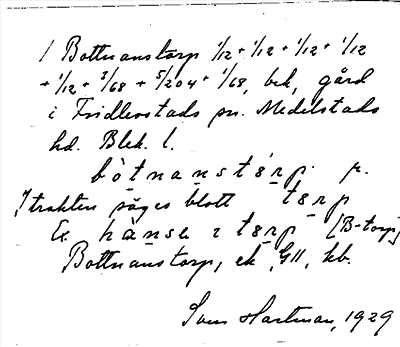 1 Bottnanstorp 1/12 + 1/12 + 1/12 + 1/12
+ 1/12 + 3/68 + 5/204 + 1/68, bek, gård
i Fridlevstads sn. Medelstads
hd. Blek. l.
bòtnanstérp.
I trakten säges blott térp
Ex. hànse i térp [B-torp]
Bottnanstorp, ek, GII, kb.
Sven Hartman, 1929